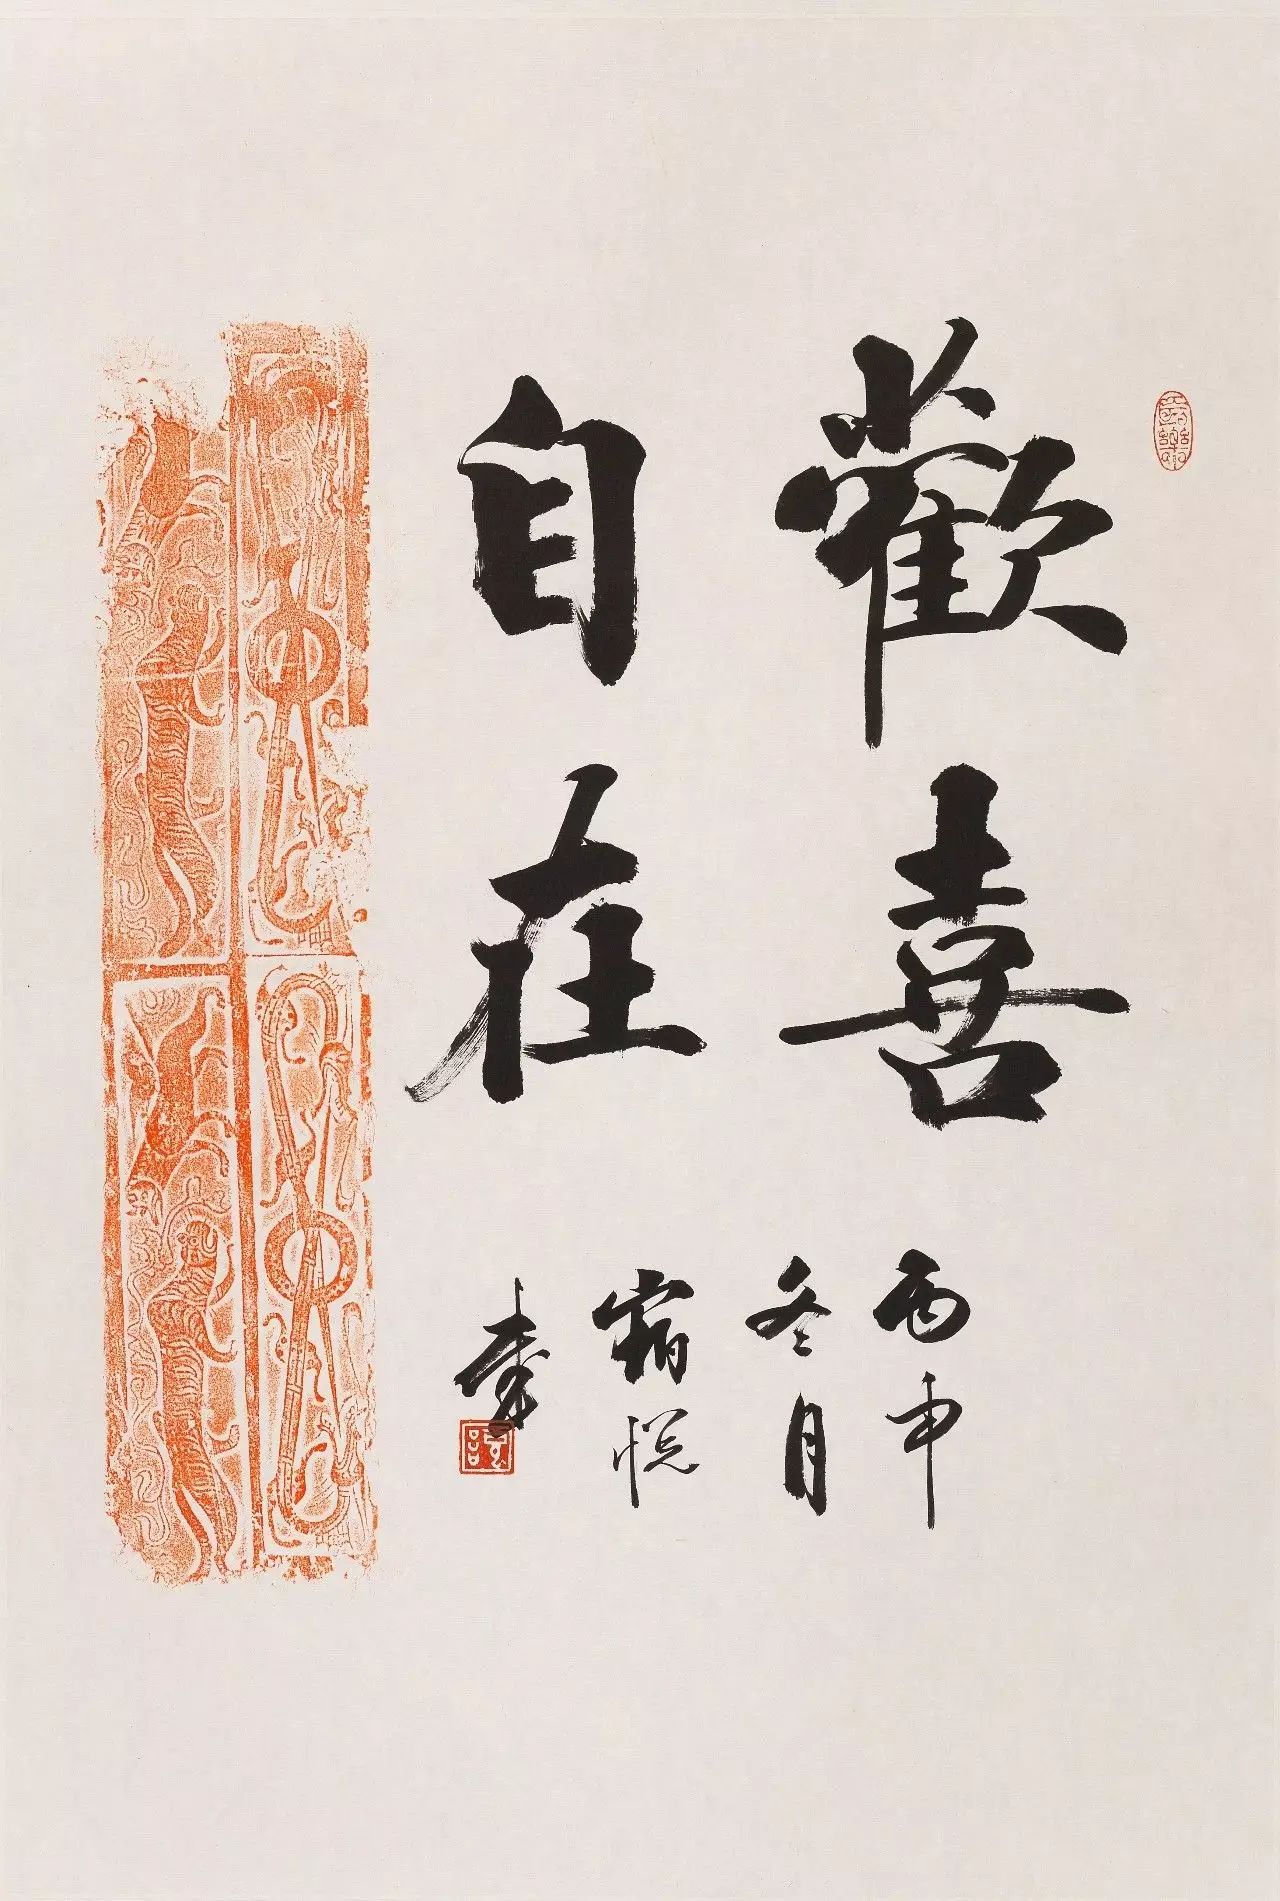 歡喜
自在
丙申
冬月
悦